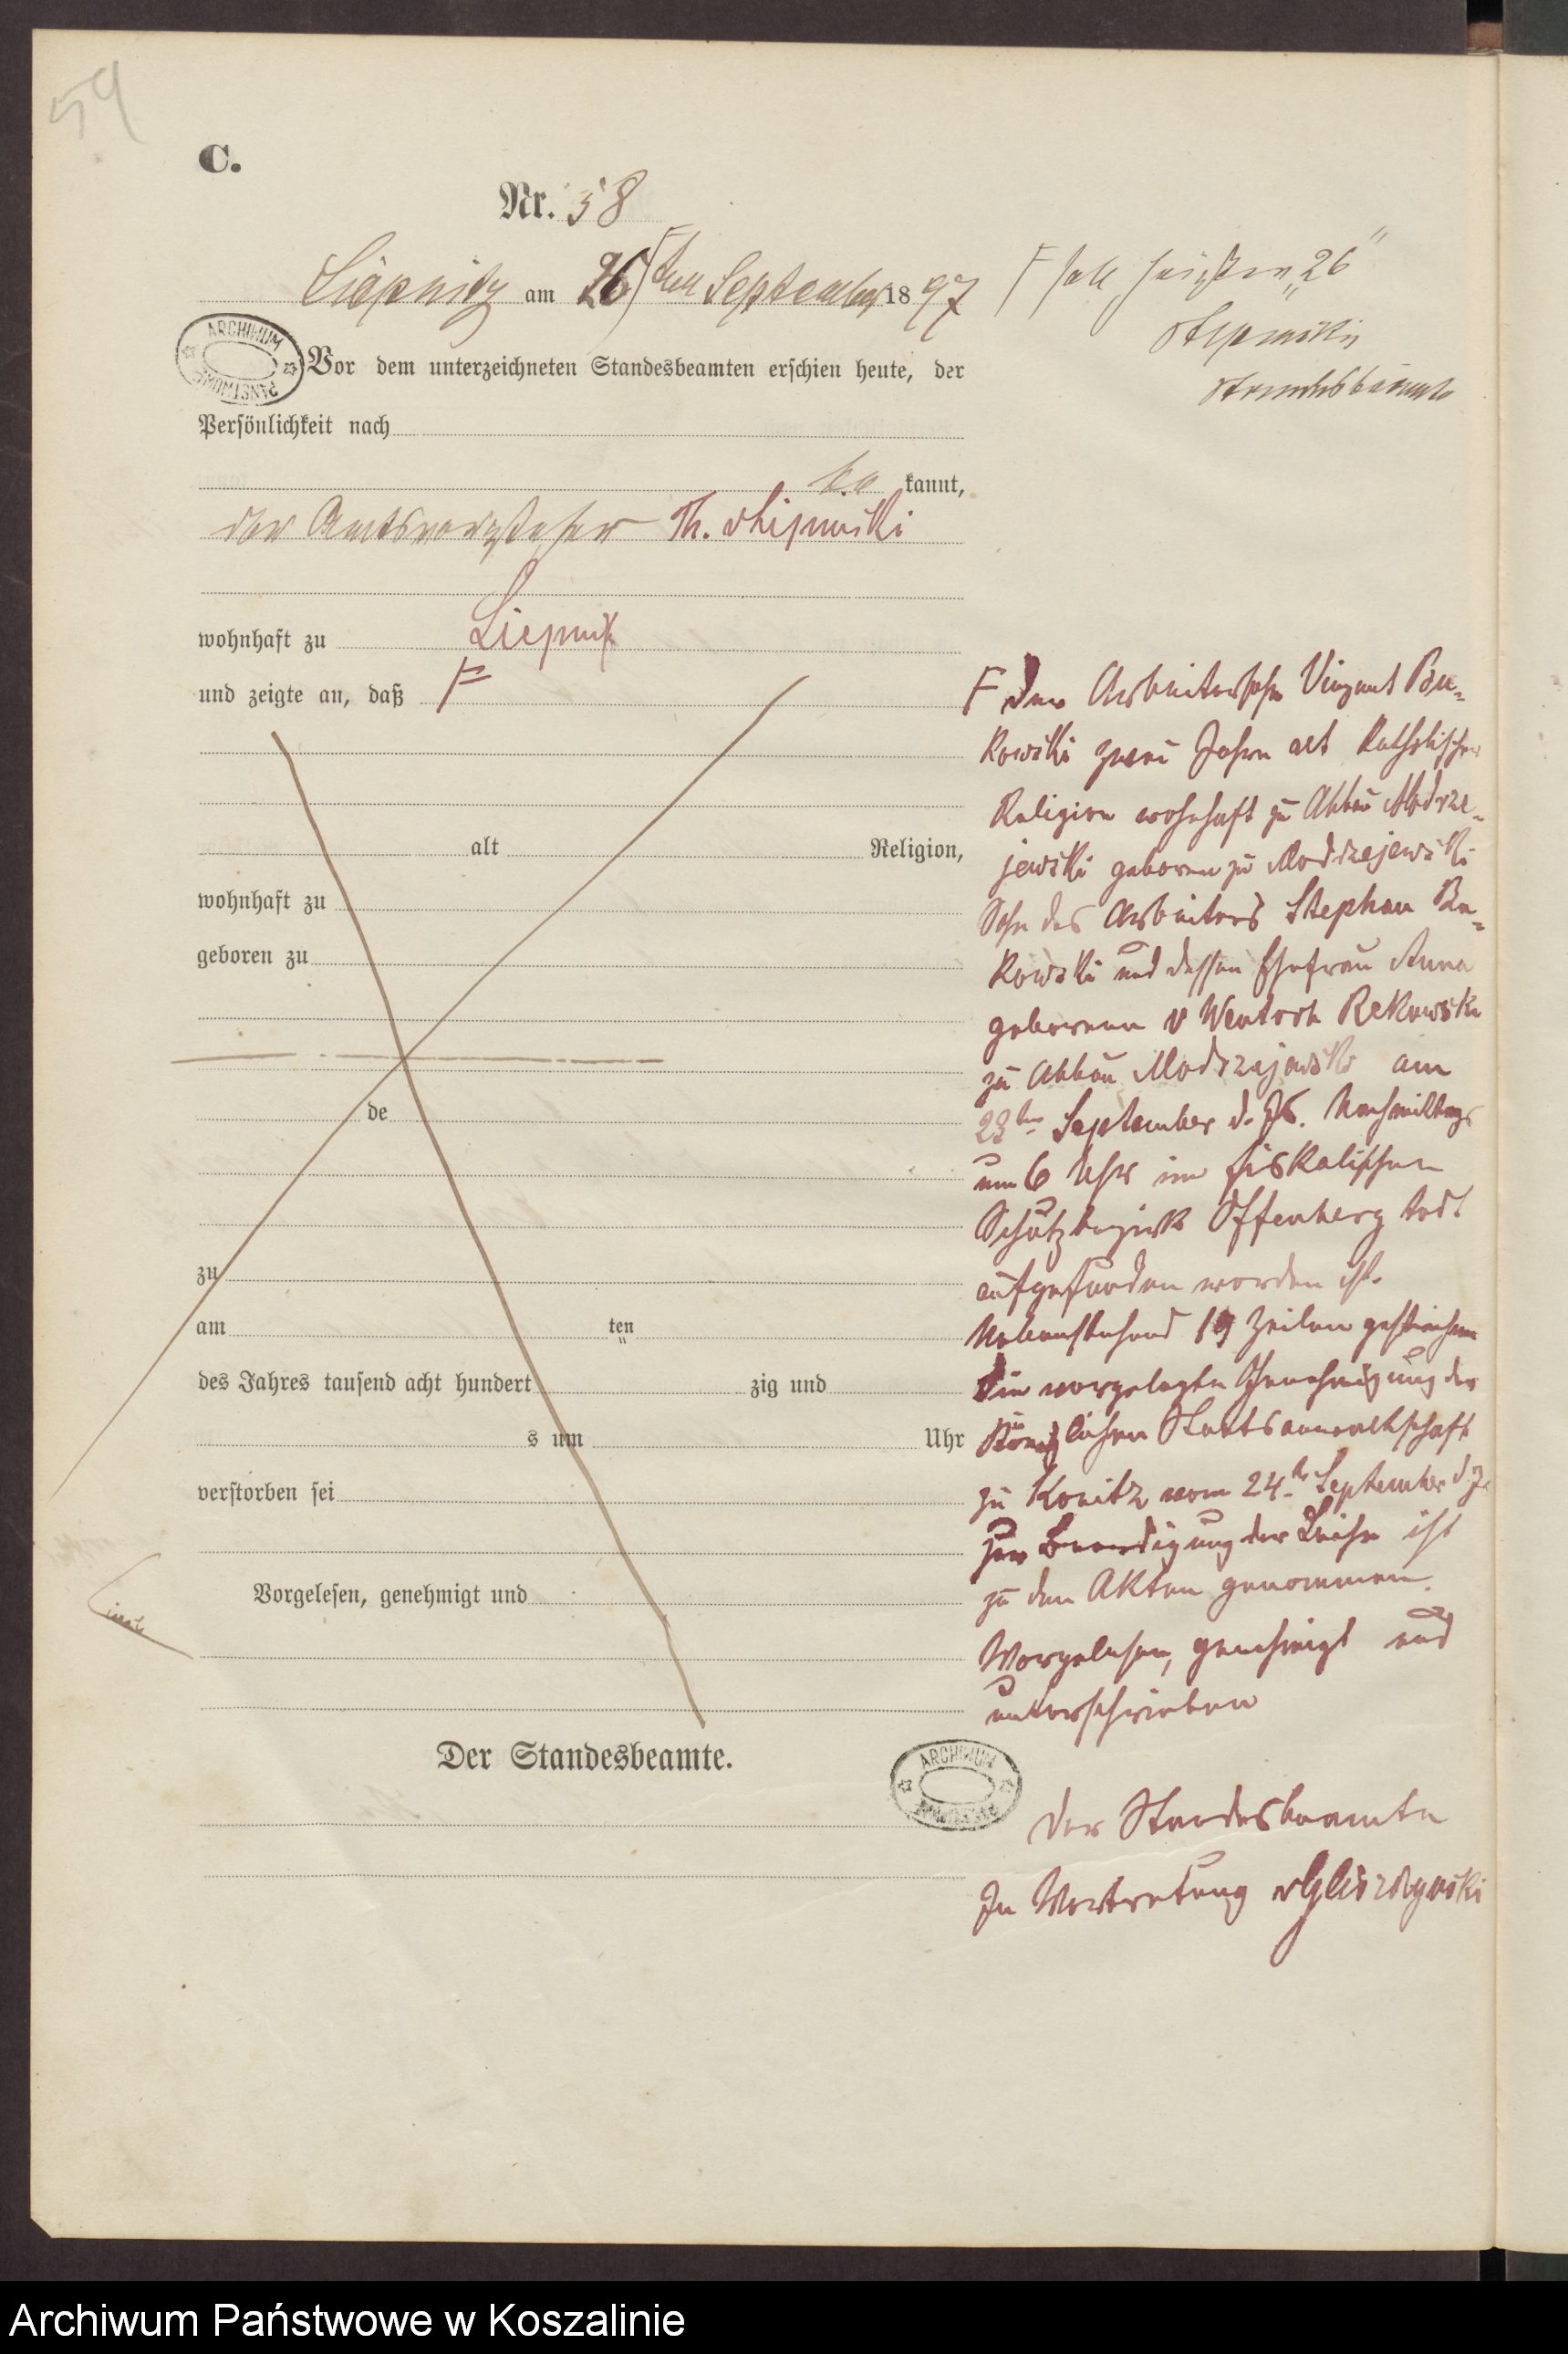 59
C.
Nr. 58
Liepnitz am 26 ten September 18 97
F soll heißen „26“
Standesbeamte
ARCHIWUM PAŃSTWOWE
Vor dem unterzeichneten Standesbeamten erschien heute, der
Persönlichkeit nach
be kannt,
der Amtsvorsteher Th.
wohnhaft zu Liepnitz
und zeigte an, daß F
alt Religion,
wohnhaft zu
geboren zu
de
zu
am ten
des Jahres tausend acht hundert zig und
s um Uhr
verstorben sei
Vorgelesen, genehmigt und
Der Standesbeamte.
F der Arbeitersohn Vinzent
zwei Jahre alt katholischer
Religion wohnhaft zu Abbau Modrze-
jewski geboren zu Modrzejewski
Sohn des Arbeiters Stephan
kowski und dessen Ehefrau Anna
geborenen v Wentoch Rekowski
zu Abbau Modrzejewski am
23ten September d. Js. Nachmittags
um 6 Uhr im fiskalischen
Schutzbezirk Offenberg todt
aufgefunden worden ist.
Nebenstehend 19 Zeilen gestrichen
Die vorgelegte Genehmigung der
Königlichen Staatsanwaltschaft
zu Konitz vom 24ten September d. J.
zur Beerdigung der Leiche ist
zu den Akten genommen.
Vorgelesen, genehmigt und
unterschrieben
ARCHIWUM PAŃSTWOWE
Der Standesbeamte
In Vertretung
Archiwum Państwowe w Koszalinie